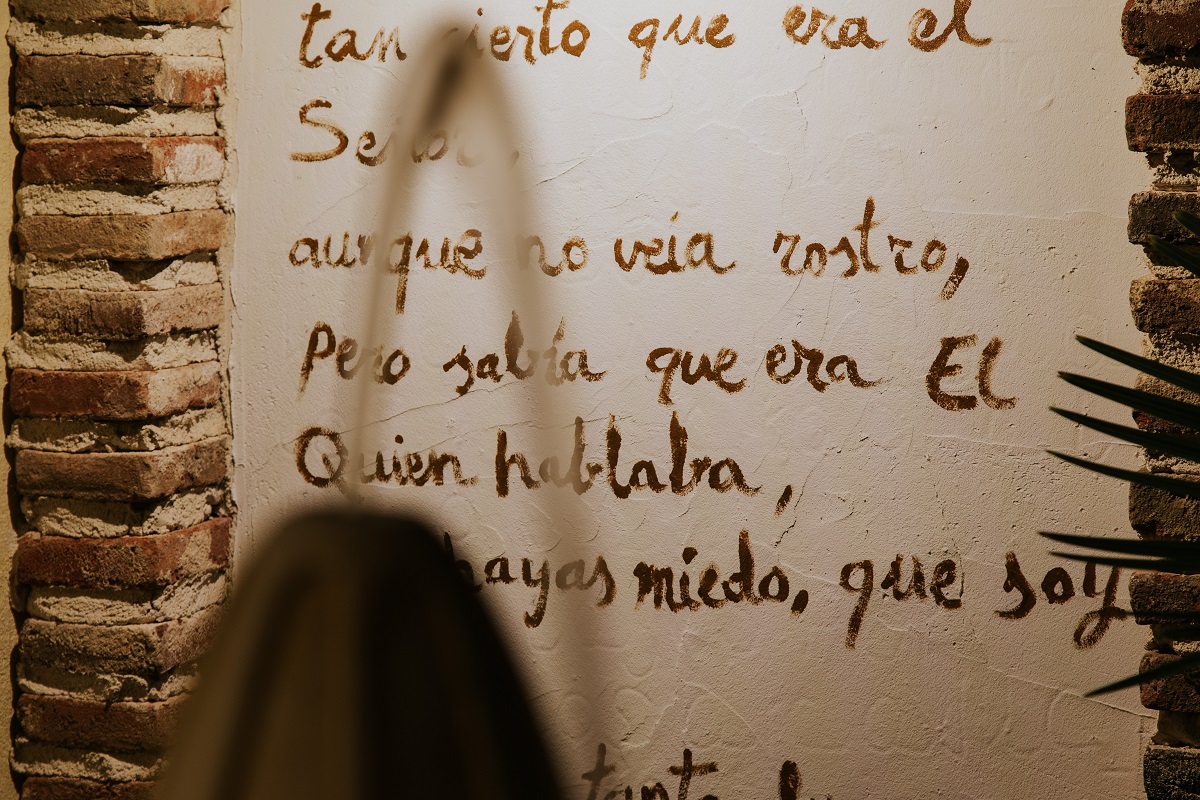 tan cierto que era el
Señor,
aunque no veía rostro,
Pero sabía que era El
Quien hablaba,
hayas miedo, que soy